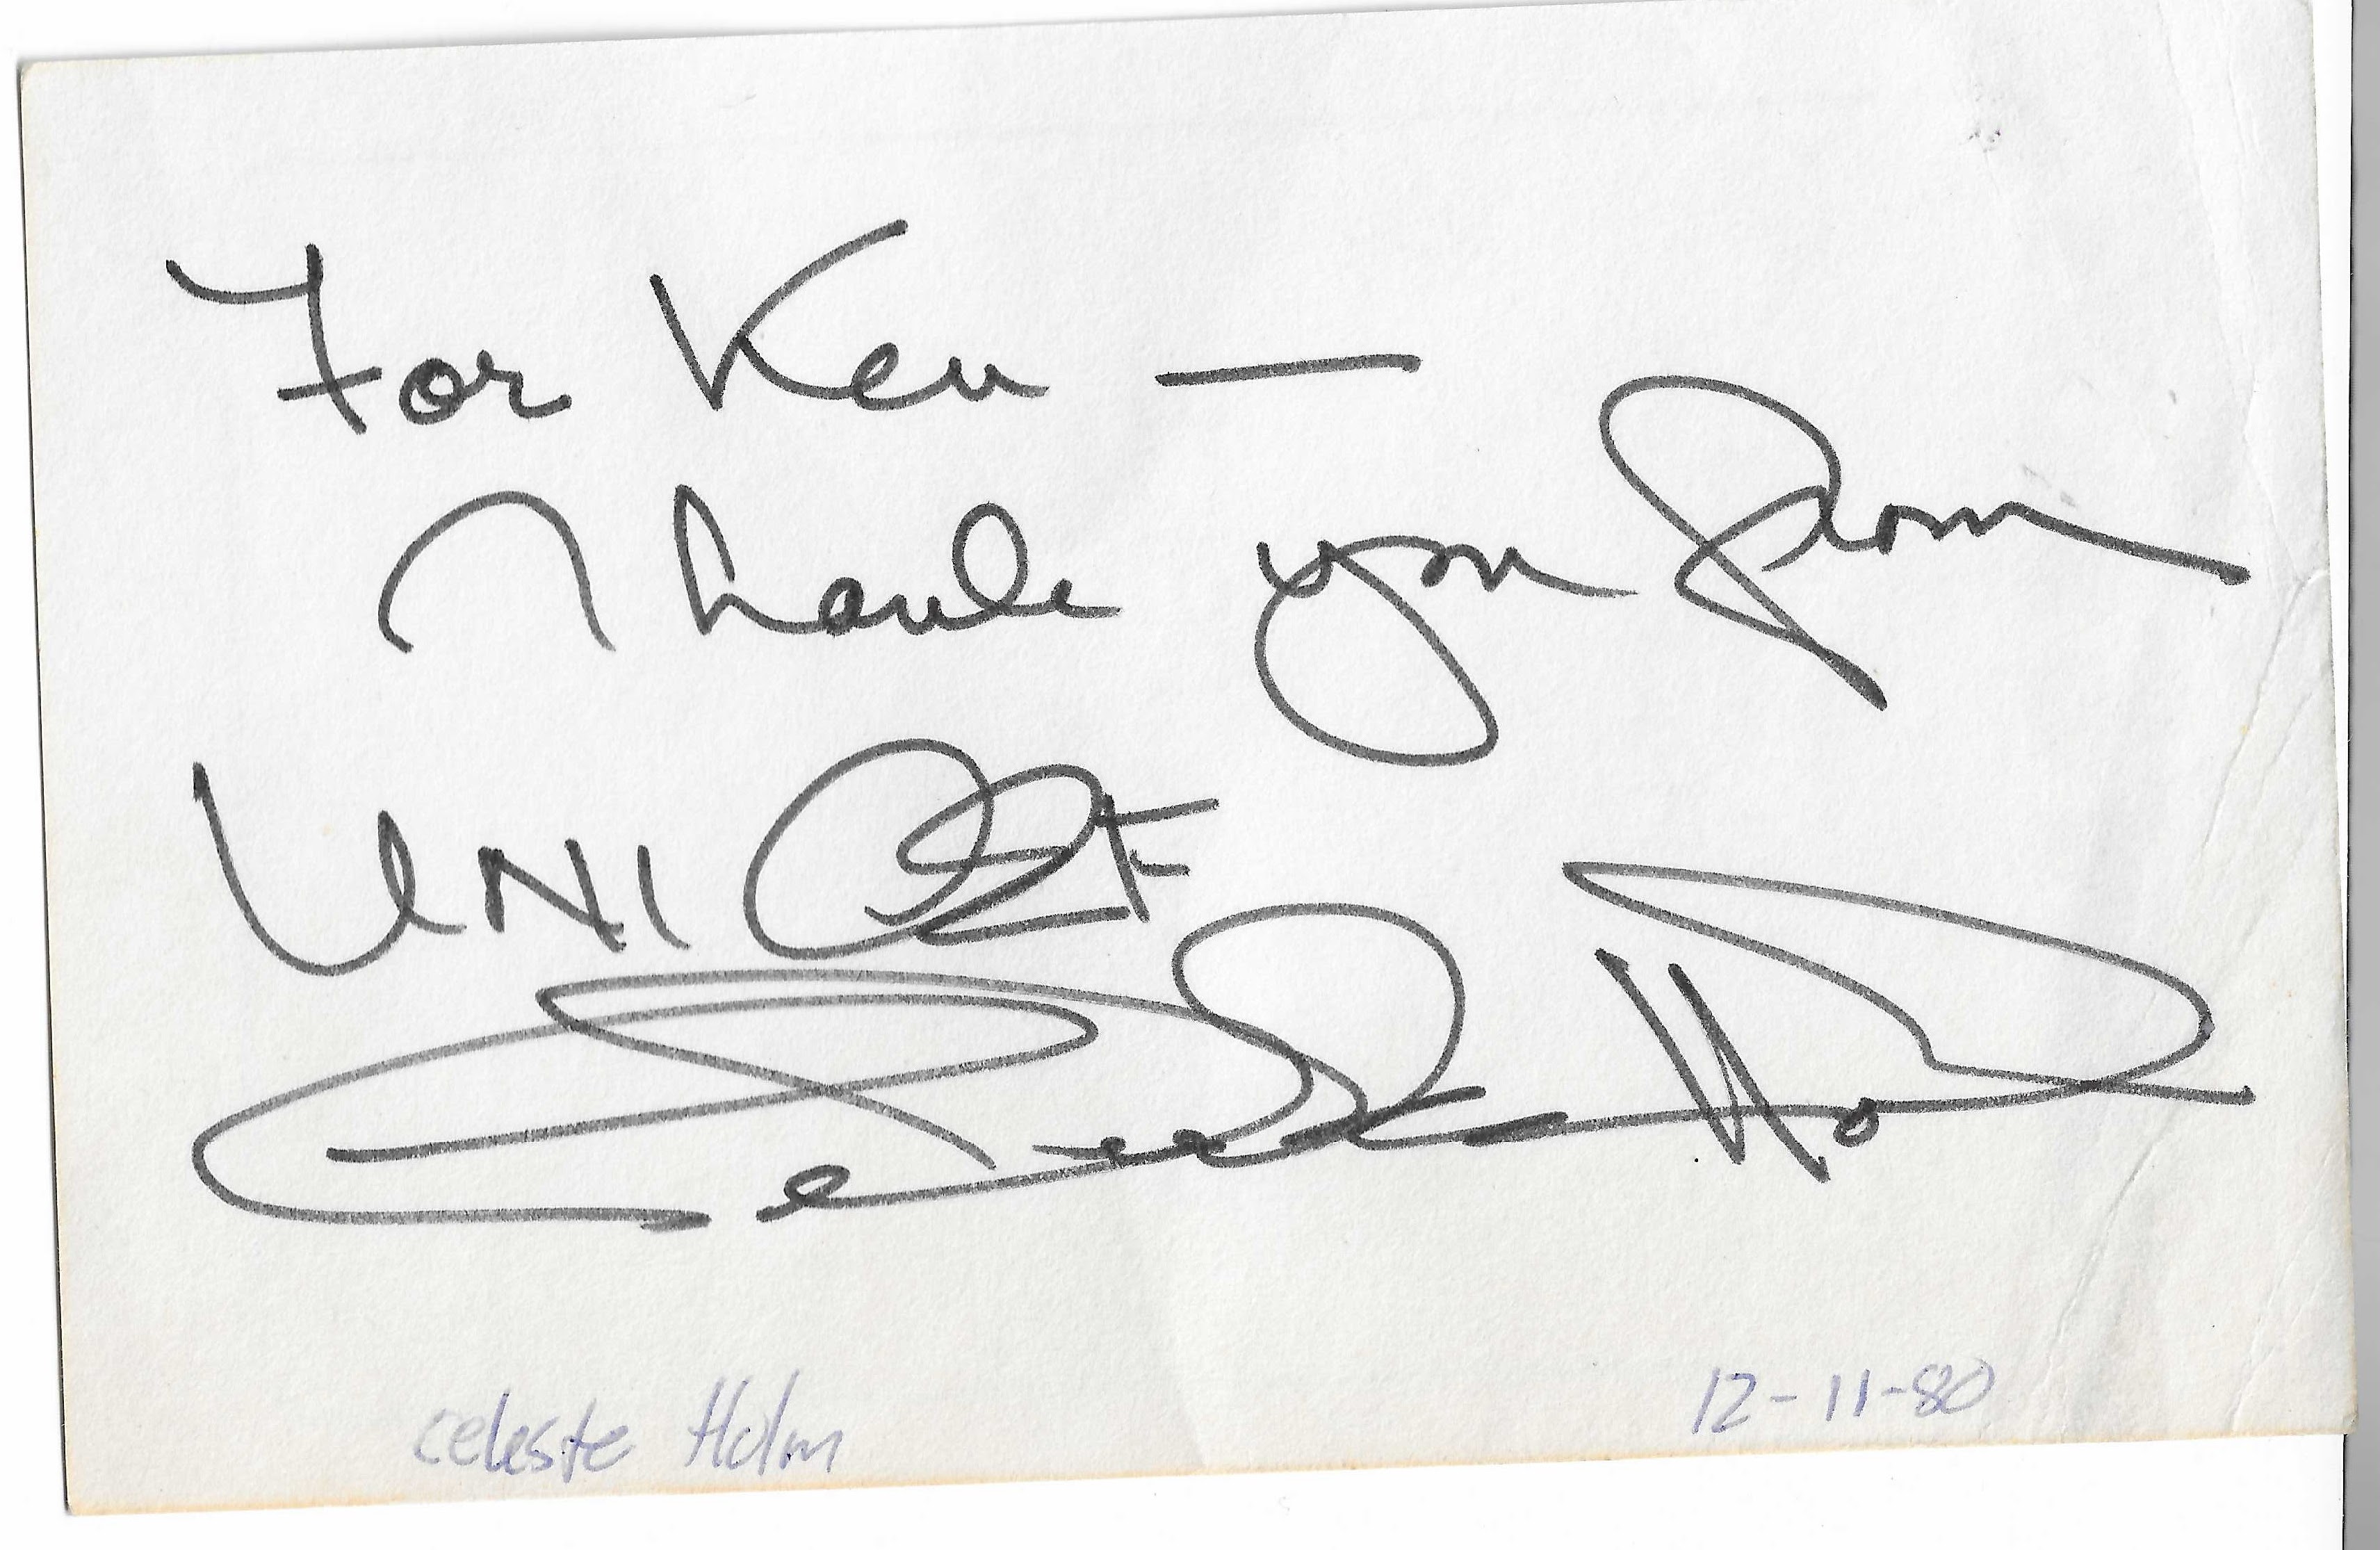 For Ken —
Thank you from
UNICEF
Celeste Holm
celeste Holm 12-11-80